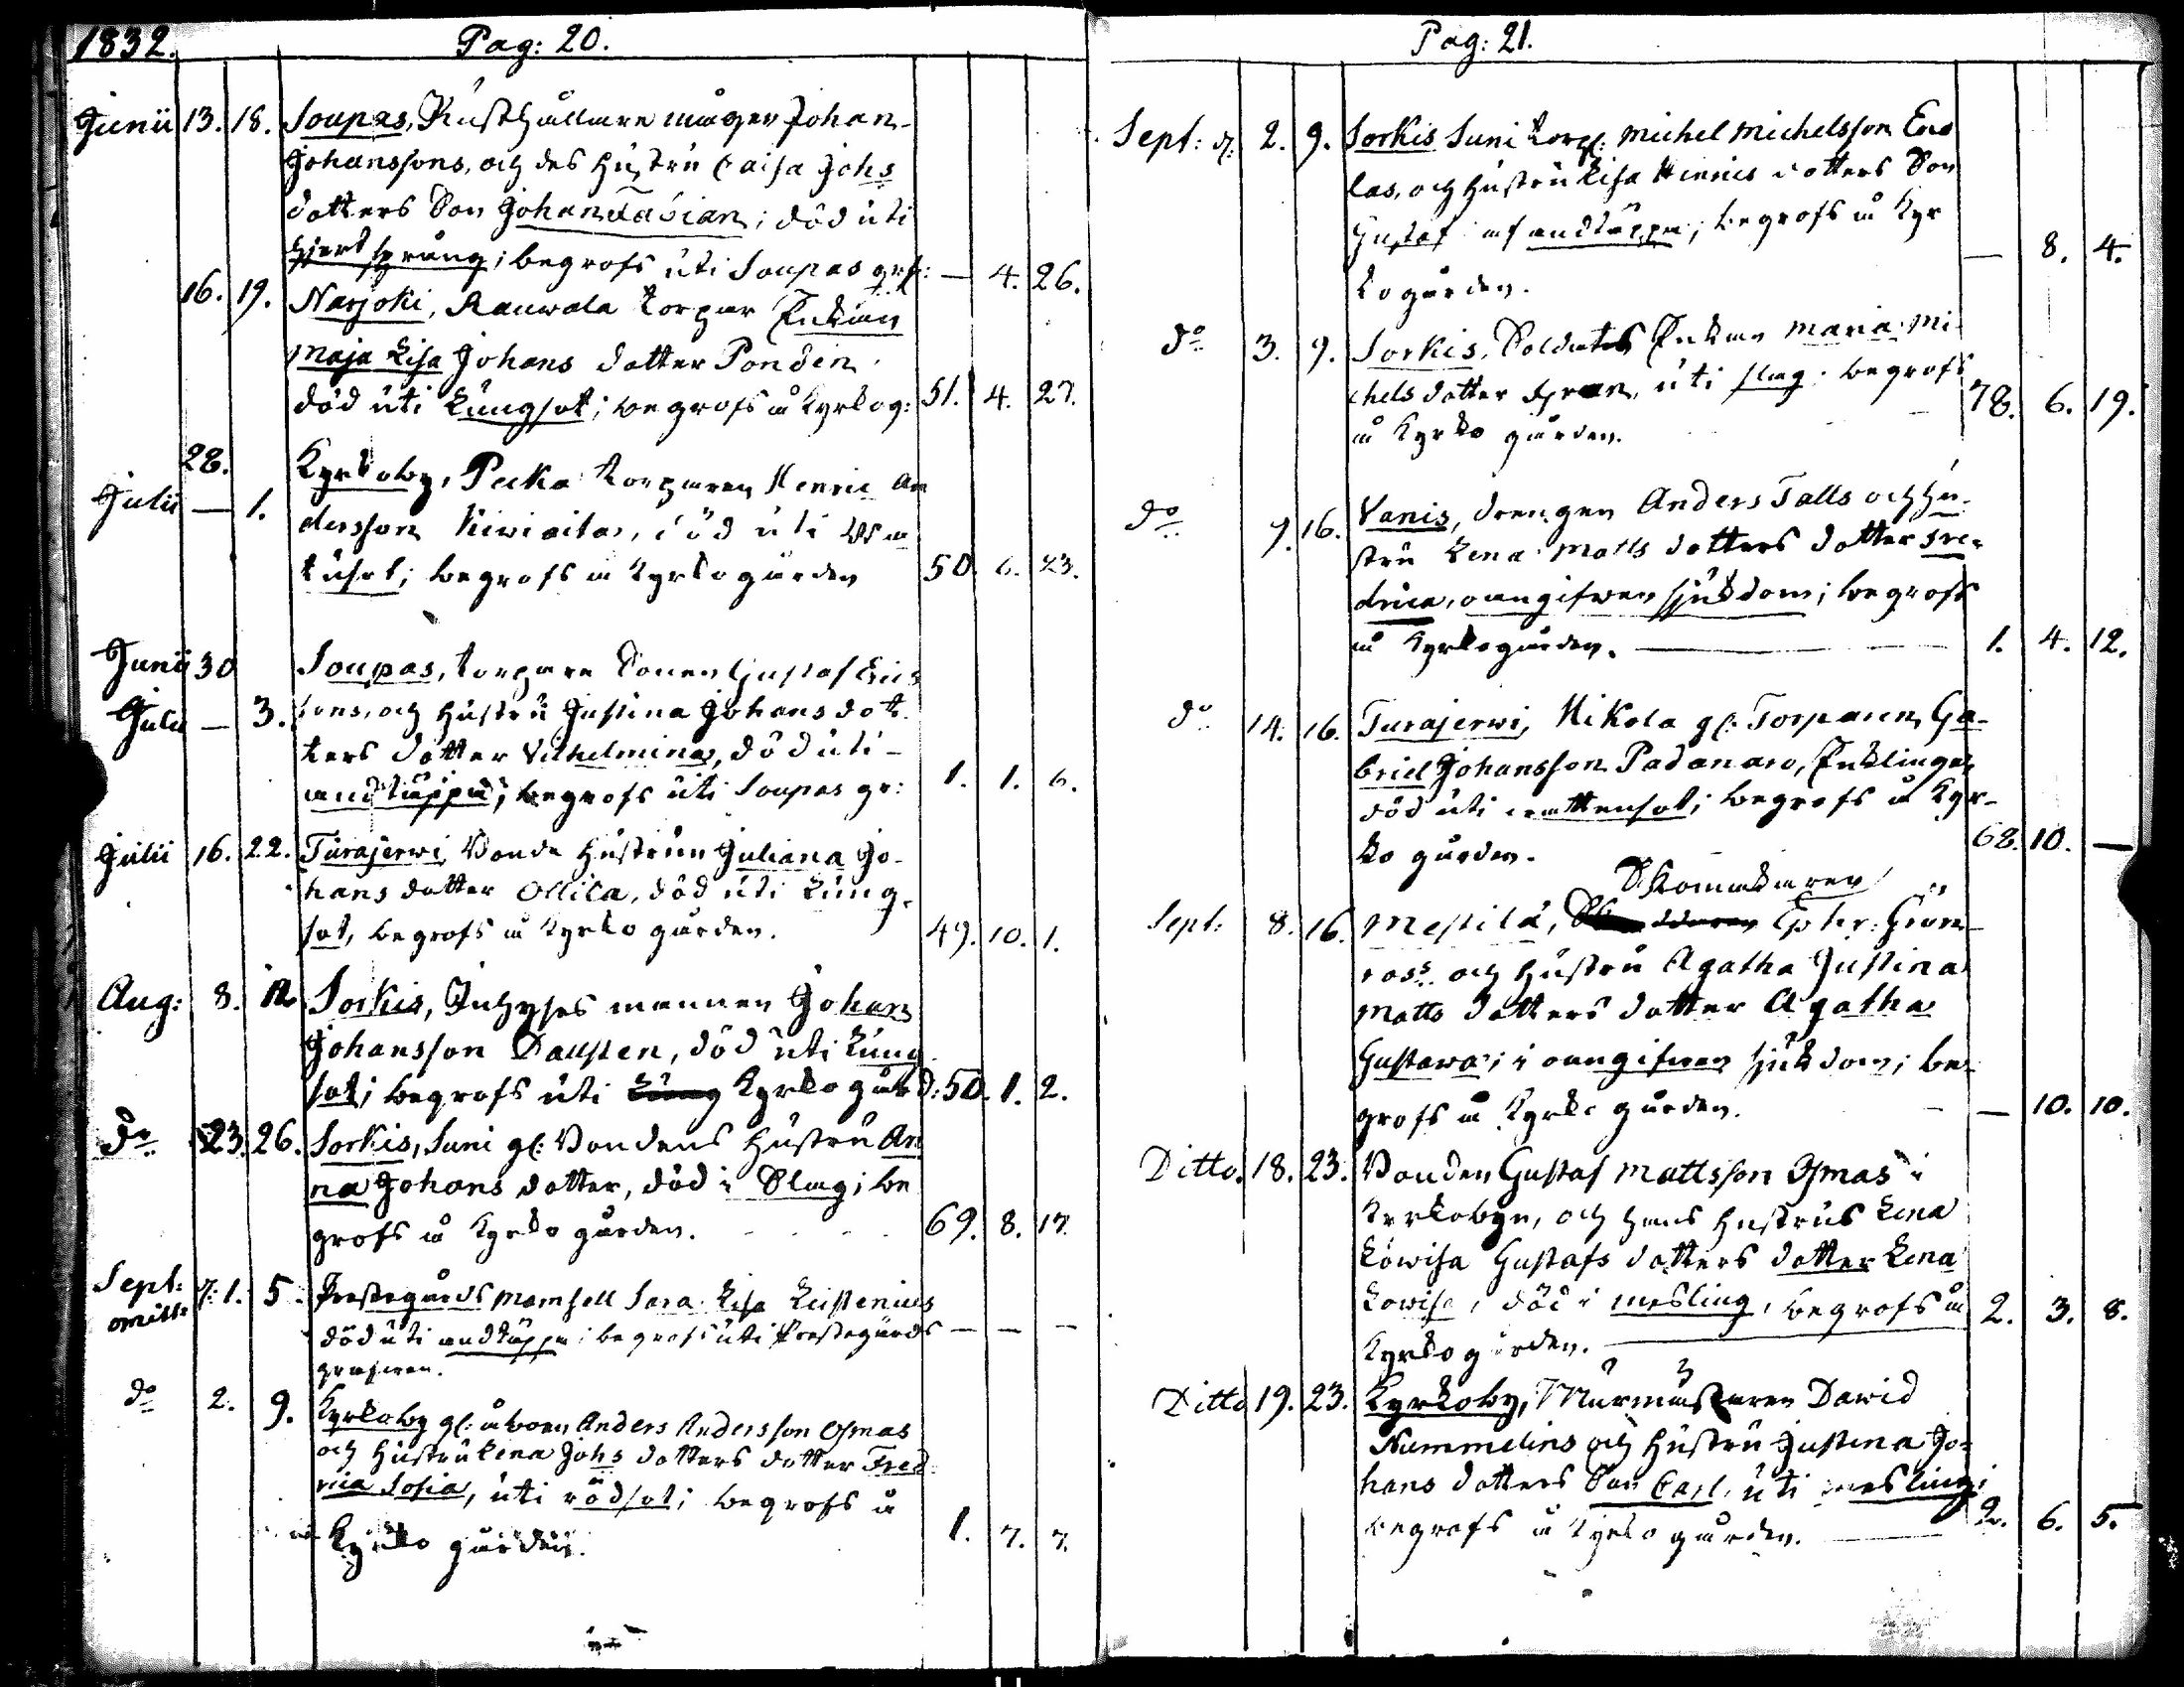 1832. Pag: 20.
Junii 13. 18. Soupas, Rusthållare mågen Johan
Johanssons, och des Hustru Caisa Johs
dotters Son Johan Fabian; död uti
hjertsprång; begrofs uti Soupas grf: — 4. 26.
16. 19. Narjoki, Rauwola torpar Enkan
Maja Lisa Johans dotter Ponden
död uti Lungsot; begrofs å Kyrkog: 51. 4. 27.
28. Kyrkoby, Pecka torparen Henric An
Julii — 1. dersson Kiwioitas, död uti
begrofs å Kyrkogården 50. 6. 23.
Junii 30 Soupas, torpare Sonen Gustaf Erics
Julii — 3. sons, och Hustru Justina Johans dot
ters dotter Vilhelmina, död uti
andtäppa; begrofs uti Soupas gr: 1. 1. 6.
Julii 16. 22. Turajerwi, Bonde Hustrun Juliana Jo-
hans dotter Ollila, död uti Lung-
sot, begrofs å Kyrko gården. 49. 10. 1.
Aug: 8. 12 Sorkis, Inhyses mannen Johan
Johansson Dallsten, död uti Lung
sot; begrofs uti Kyrko gård: 50. 1. 2.
do 23. 26. Sorkis, Suni gl: Bondens Hustru An
na Johans dotter, död i Slag; be
grofs å Kyrko gården. 69. 8. 17.
Sept: d: 1. 5. Prestegårds Mamsell Sara Lisa Leistenius
omitt: död uti andtäppa; begrofs uti Prestegårds — — —
grafwen.
do 2. 9. Kyrkoby gl: åboen Anders Andersson Osmas
och Hustru Lena Johs dotters dotter Fred
rica Sofia, uti rödsot; begrofs å
Kyrko gården. 1. 7. 7.
Pag: 21.
Sept: d: 2. 9. Sorkis Suni torp: Michel Michelsson Eno
las, och Hustru Lisa Henrics dotters Son
Gustaf af andtäppa; begrofs å Kyr
ko gården. — 8. 4.
do 3. 9. Sorkis, Soldats Enkan Maria Mi
chels dotter uti slag; begrofs
å Kyrko gården. 78. 6. 19.
do 9. 16. Vanis, drengen Anders Talls och Hu
stru Lena Matts dotters dotter Fre-
drica, oangifwen sjukdom; begrofs
å Kyrkogården. 1. 4. 12.
do 14. 16. Turajerwi, Nikola gl: Torparen Ga-
briel Johansson Padanaro, Enklingen
död uti wattensot; begrofs å Kyr-
ko gården. 68. 10. —
Skomakaren
Sept: 8. 16. Mestilä, Ephr: Grön
ross och Hustru Agatha Justina
Matts dotters dotter Agatha
Gustawa; i oangifwen sjukdom; be-
grofs å Kyrko gården. — 10. 10.
Ditto. 18. 23. Bonden Gustaf Mattsson Osmas i
Kyrkobyn, och hans hustrus Lena
Lowisa Gustafs dotters dotter Lena
Lowisa, död i mesling, begrofs å 2. 3. 8.
Kyrko gården.
Ditto 19. 23. Kyrkoby, Murmästaren Dawid
Nummelins och Hustru Justina Jo-
hans dotters Son Carl, uti mesling;
begrofs å Kyrko gården. 2. 6. 5.